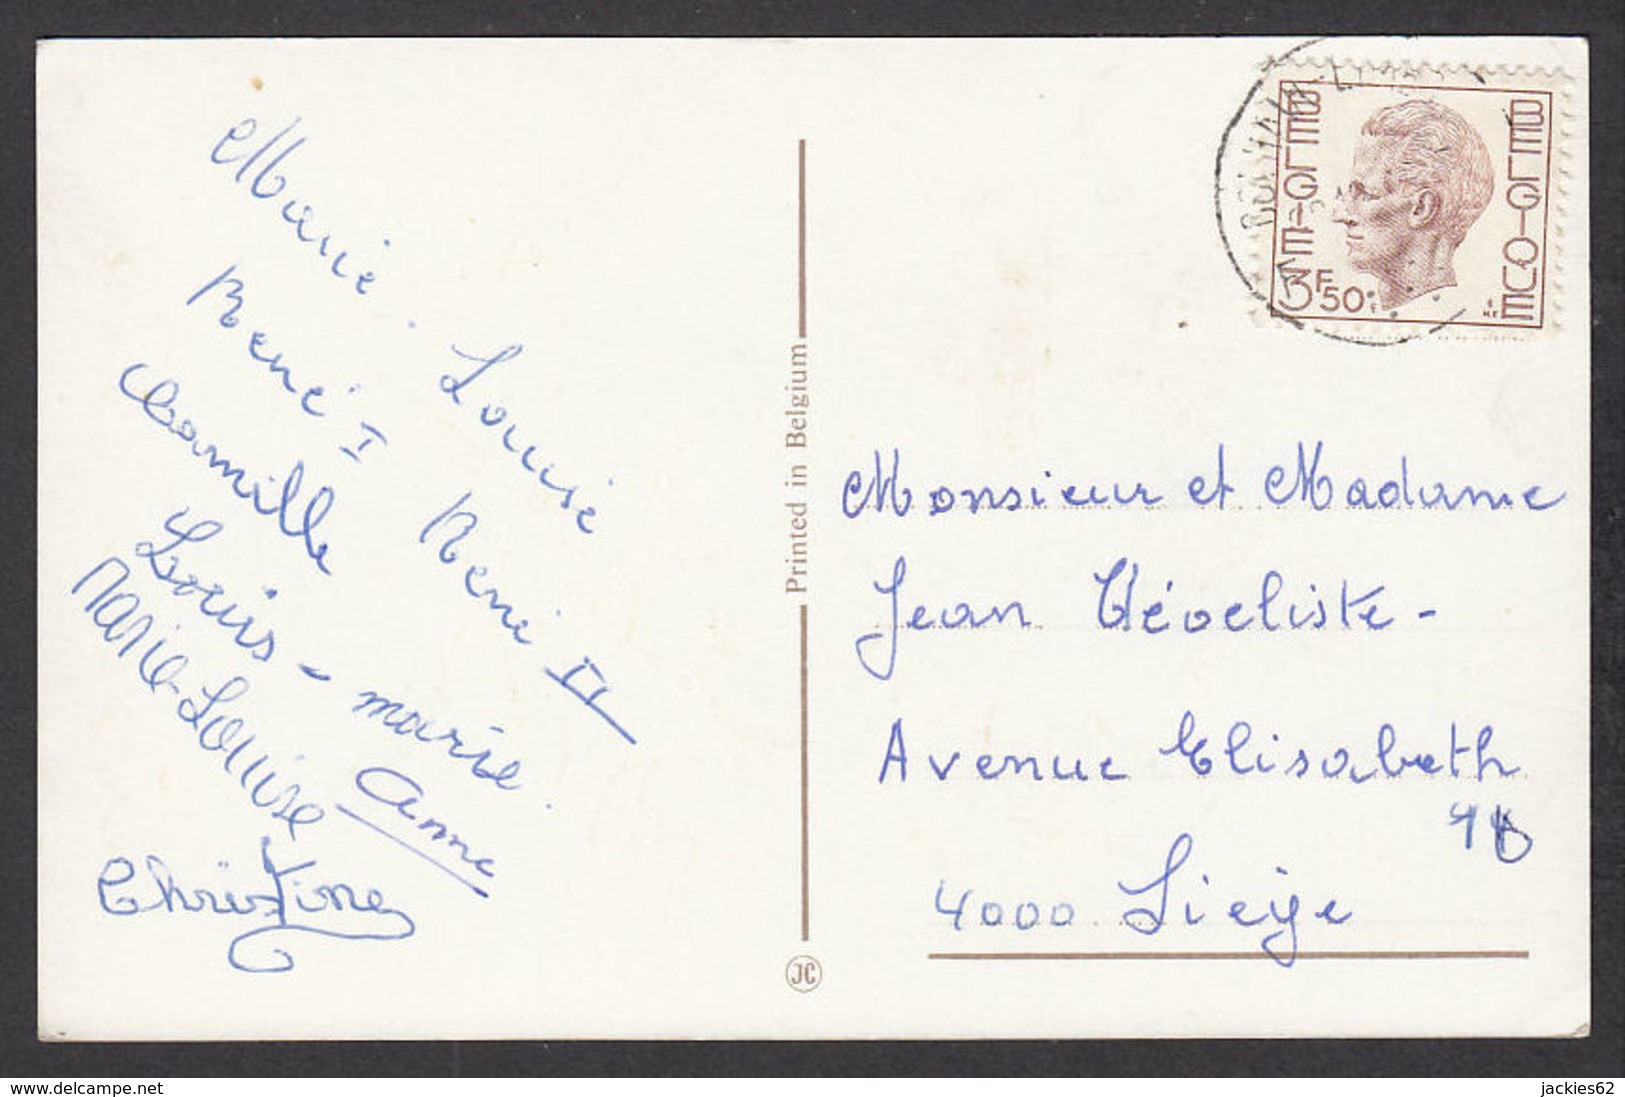 Marie-Louise
René I René II
Camille
Louis-marie.
Marie-Louise
Anne
Christine
Printed in Belgium
JC
BELGIE BELGIQUE
3F50
Monsieur et Madame
Jean
Avenue Elisabeth
4000 Liège
www.delcampe.net
jackies62